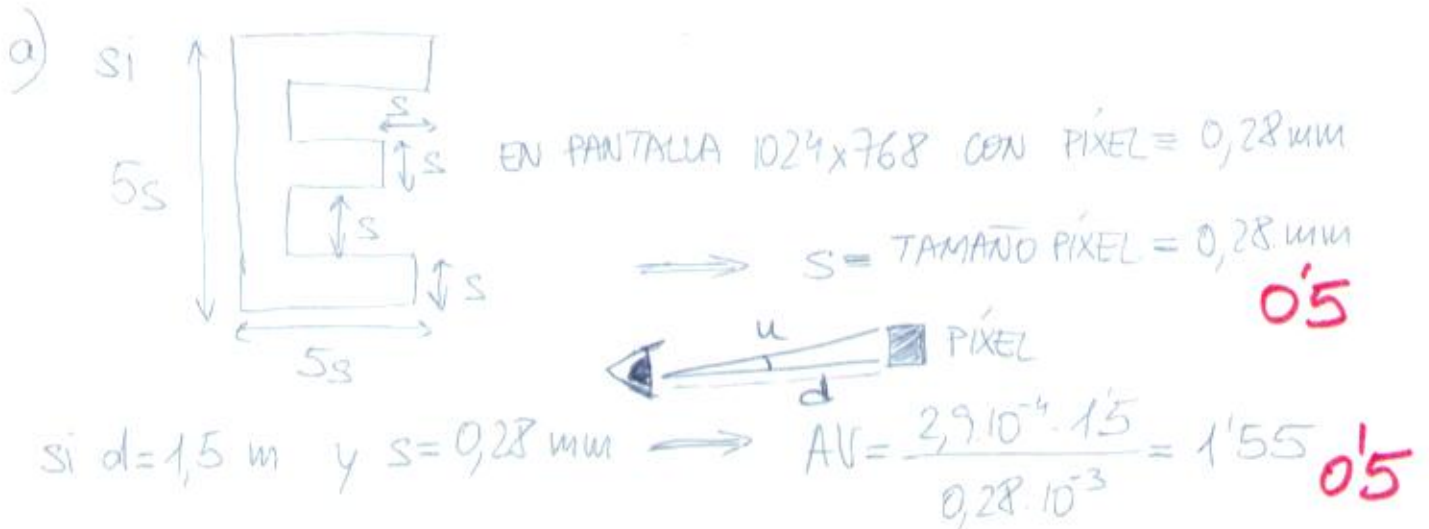 a) si
5s
s
s
s
s
5s
EN PANTALLA 1024x768 CON PÍXEL = 0,28 mm
⟹ S = TAMAÑO PÍXEL = 0,28 mm
0'5
u
d
PÍXEL
si d=1,5 m y s=0,28 mm ⟹ AV = 2,9·10⁻⁴·1'5 / 0,28·10⁻³ = 1'55
0'5